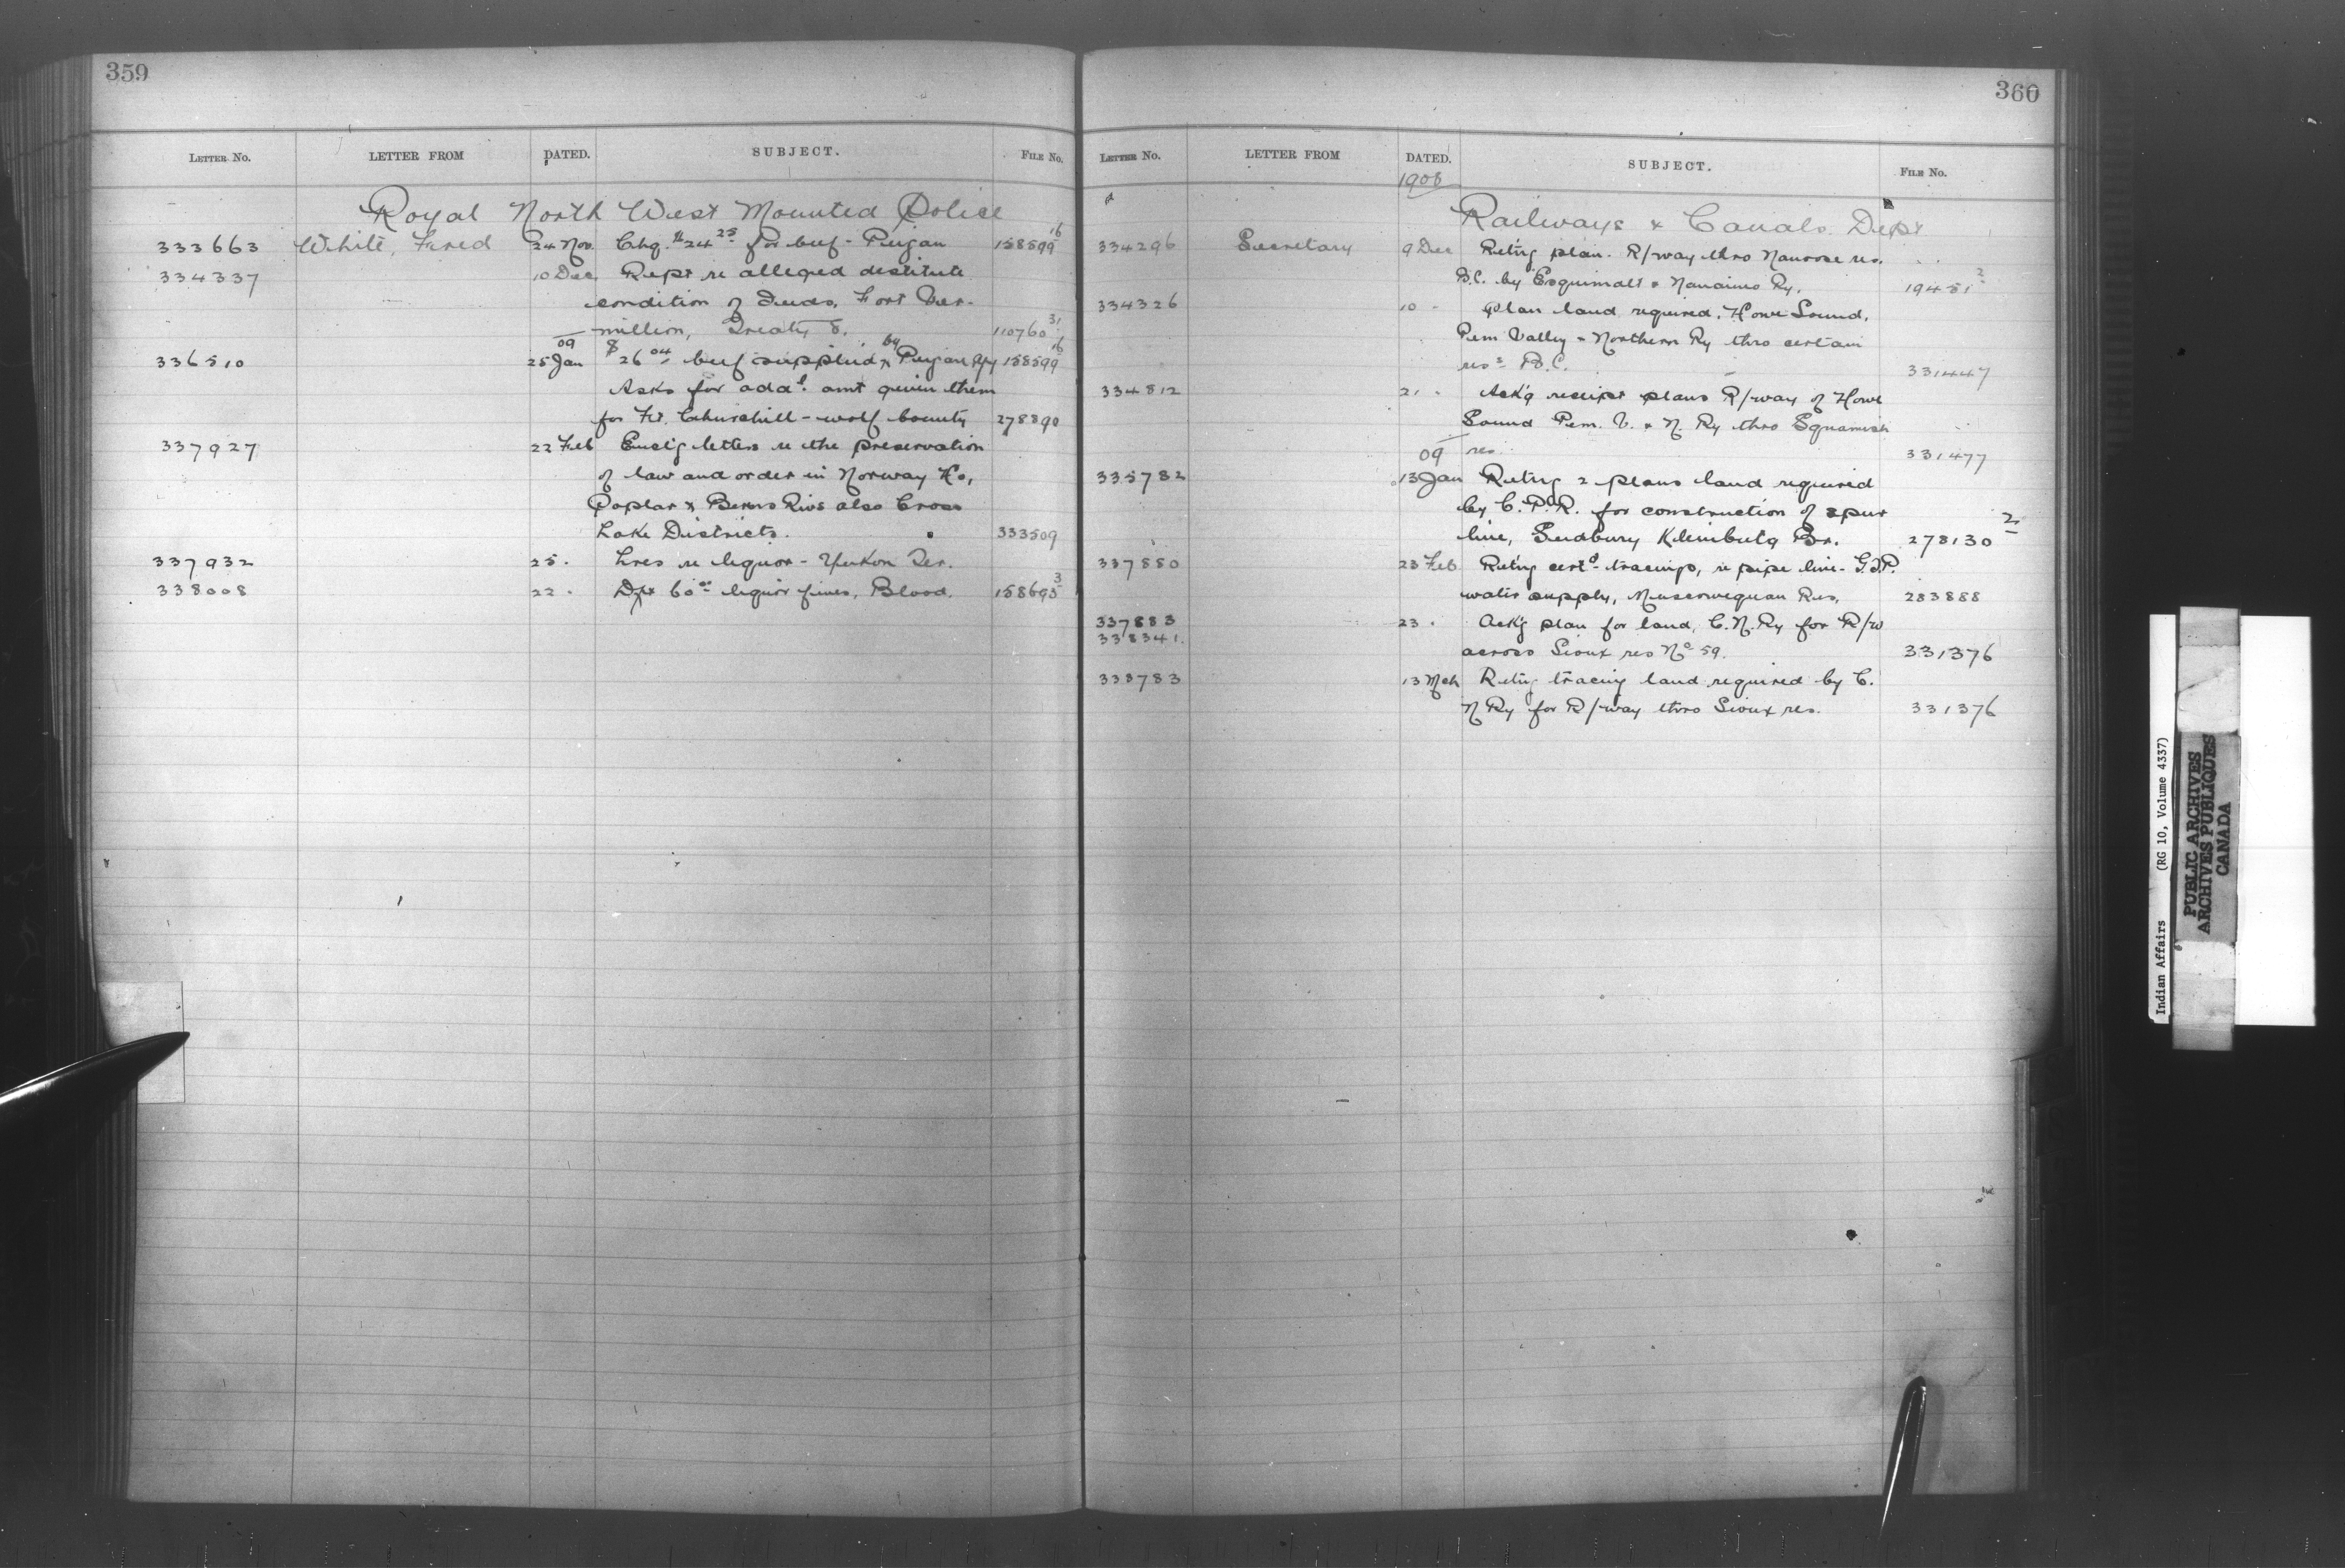 359
LETTER No. LETTER FROM DATED. SUBJECT. FILE No.
Royal North West Mounted Police
333663 White, Fred 24 Nov. Chq. $24 25 for beef - Peigan 158599 16
334337 10 Dec Rept re alleged destitute
condition of Inds, Fort Ver-
million, Treaty 8. 110760 31
09
336510 25 Jan $26 04 beef supplied by Peigan Agy 158599 16
Asks for addl. amt given them
for Ft. Churchill - wolf bounty 278890
337927 22 Feb Enclg letters re the preservation
of law and order in Norway Ho,
Poplar & Berens Rivs also Cross
Lake Districts. 333509
337932 25 . Lres re liquor - Yukon Ter.
338008 22 . Dft 60 00 liquor fines, Blood. 158693 3
360
LETTER No. LETTER FROM DATED. SUBJECT. FILE No.
1908
Railways & Canals Dept
334296 Secretary 9 Dec Retng plan. R/way thro Nanoose res.
B.C. by Esquimalt & Nanaimo Ry. 19451 2
334326 10 - Plan land required, Howe Sound,
Pem Valley & Northern Ry thro certain
ress B.C. 331447
334812 21 . Ack'g receipt plans R/way of Howe
Sound Pem. V. & N. Ry thro Squamish
09 res. 331477
335782 13 Jan Retng 2 plans land required
by C.P.R. for construction of spur
line, Sudbury Kleinburg Br. 278130 2
337850 23 Feb Retng certd tracings, re pipe line - G.T.P.
water supply, Muscowequan Res, 283888
337883 23 . Ack'g plan for land, C.N.Ry for R/w
338341.
across Sioux res No 59. 331376
338783 13 Mch Retng tracing land required by C.
N Ry for R/way thro Sioux res. 331376
Indian Affairs (RG 10, Volume 4337)
PUBLIC ARCHIVES
ARCHIVES PUBLIQUES
CANADA